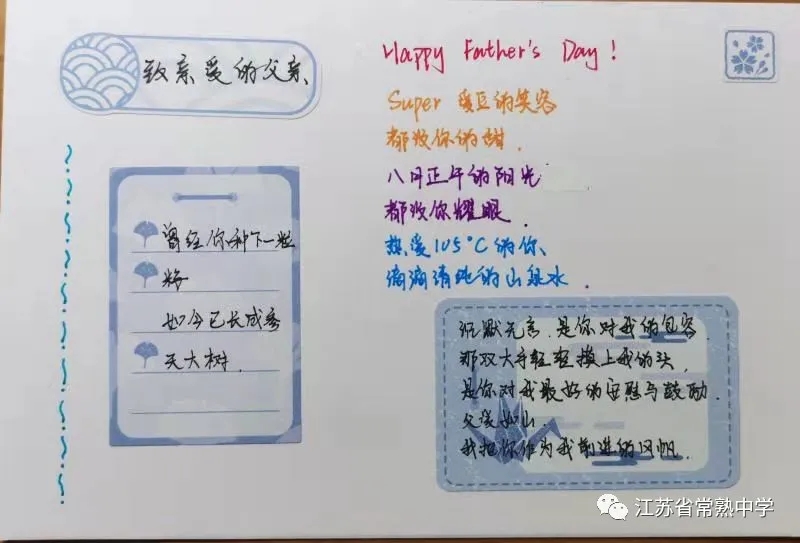 致亲爱的父亲、
Happy Father's Day!
Super 爱豆的笑容
都没你的甜.
八月正午的阳光
都没你耀眼.
热爱105°C的你、
滴滴清纯的山泉水.
曾经你种下一粒
籽
如今已长成参
天大树.
沉默无言,是你对我的包容.
那双大手轻轻摸上我的头
是你对我最好的安慰与鼓励.
父爱如山.
我把你作为我前进的风帆.
江苏省常熟中学